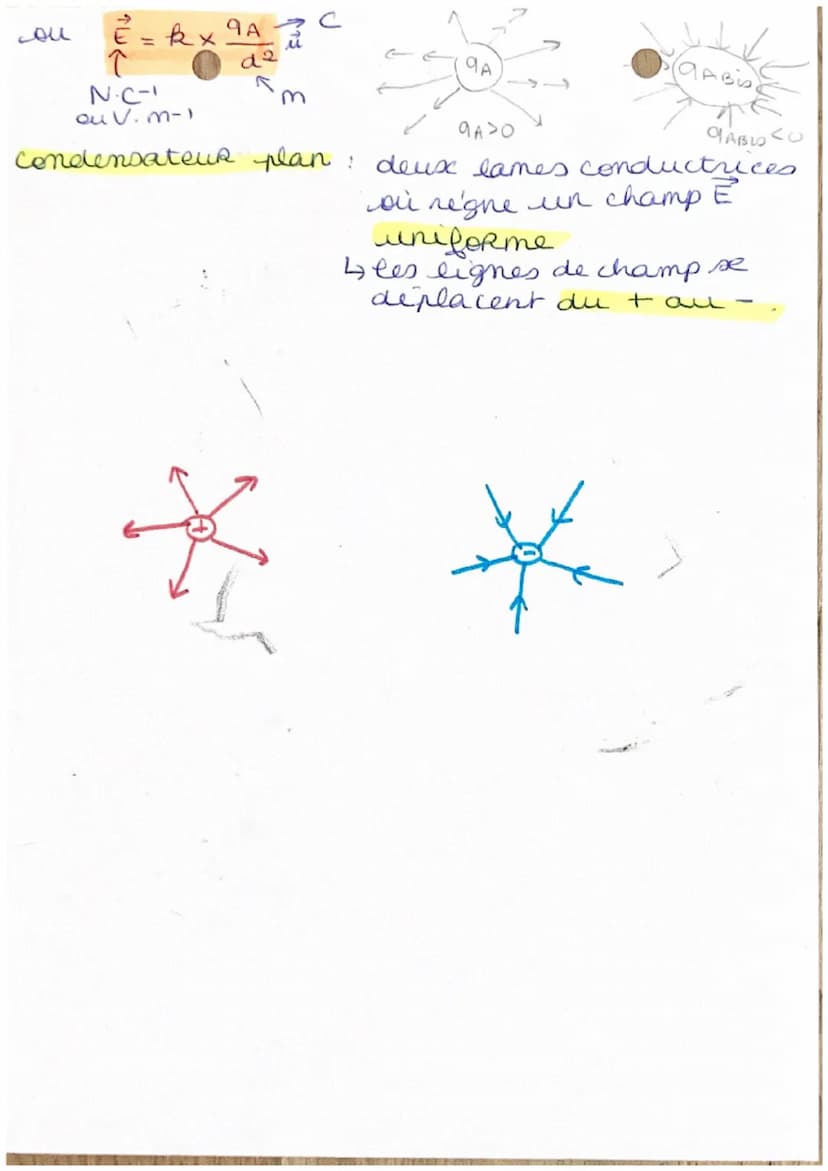 ou E⃗ = k × qA/d² u⃗ → C
N.C-1
ou V.m-1
m
qA
qA>0
qABis
qABis<0
condensateur plan : deux lames conductrices
où règne un champ E⃗
uniforme
↳ les lignes de champ se
déplacent du + au -.
+
-